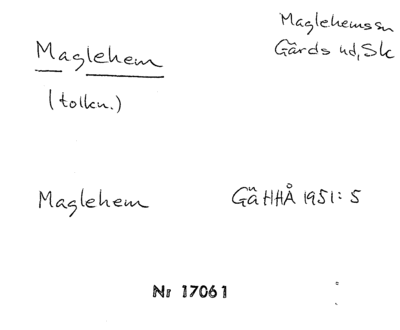 Maglehem
(tolkn.)
Maglehemssn
Gärds hd, Sk
Maglehem
Gä HHÅ 1951: 5
Nr 17061